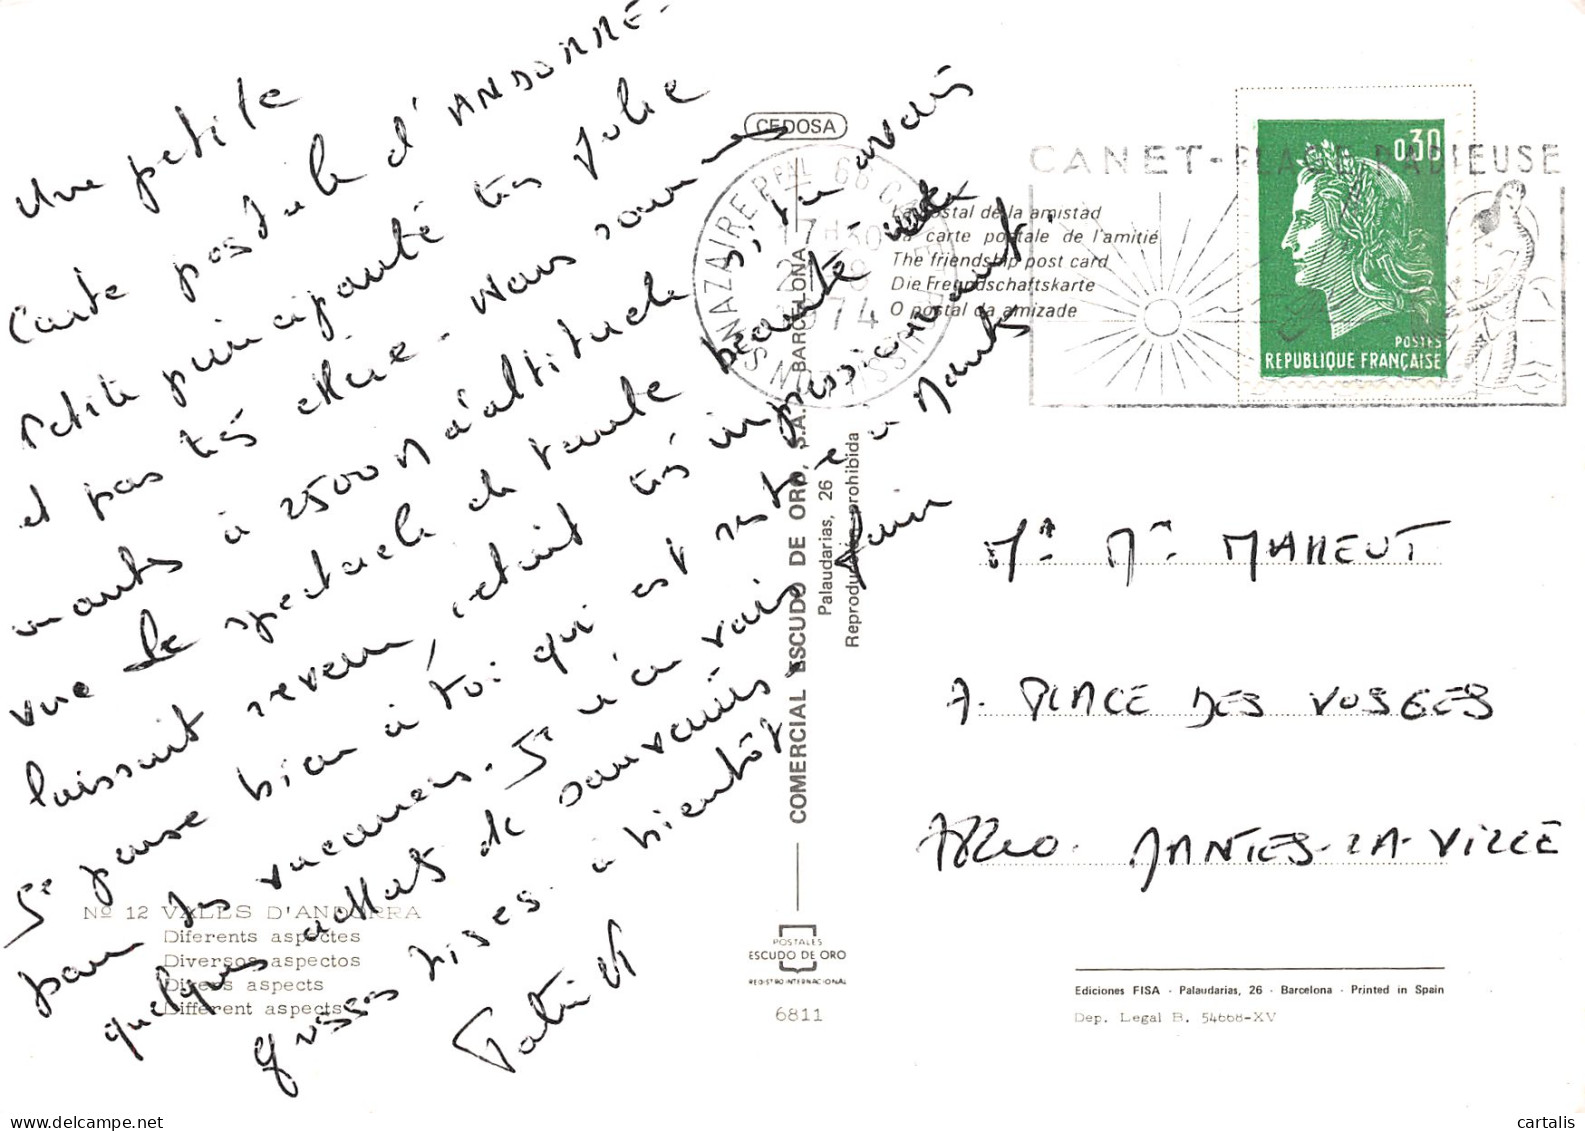 Une petite
Carte postale d'ANDORRE-
Petite principauté très jolie
et pas très chère - Nous sommes
montés à 2500 M d'altitude,
vue le spectacle de toute beauté
laissait revenir, c'était très impressionnant.
Je pense bien à toi qui est resté à Mantes
pour les vacances. Je m'en vais faire
quelques achats de souvenirs.
grosses bises. à bientôt
Patrick
CEDOSA
La postal de la amistad
La carte postale de l'amitié
The friendship post card
Die Freundschaftskarte
O postal da amizade
COMERCIAL ESCUDO DE ORO, S.A. BARCELONA
Palaudarias, 26
Reproducción prohibida
ST NAZAIRE PPAL 66
17H30
1974
CANET-PLAGE RADIEUSE
0,30
POSTES
REPUBLIQUE FRANÇAISE
Mr Me MAHEUT
7. PLACE DES VOSGES
78200. MANTES-LA-VILLE
Nº 12 VALLS D'ANDORRA
Diferents aspectes
Diversos aspectos
Divers aspects
Different aspects
POSTALES
ESCUDO DE ORO
REGISTRO INTERNACIONAL
6811
Ediciones FISA - Palaudarias, 26 - Barcelona - Printed in Spain
Dep. Legal B. 54668-XV
www.delcampe.net
cartalis